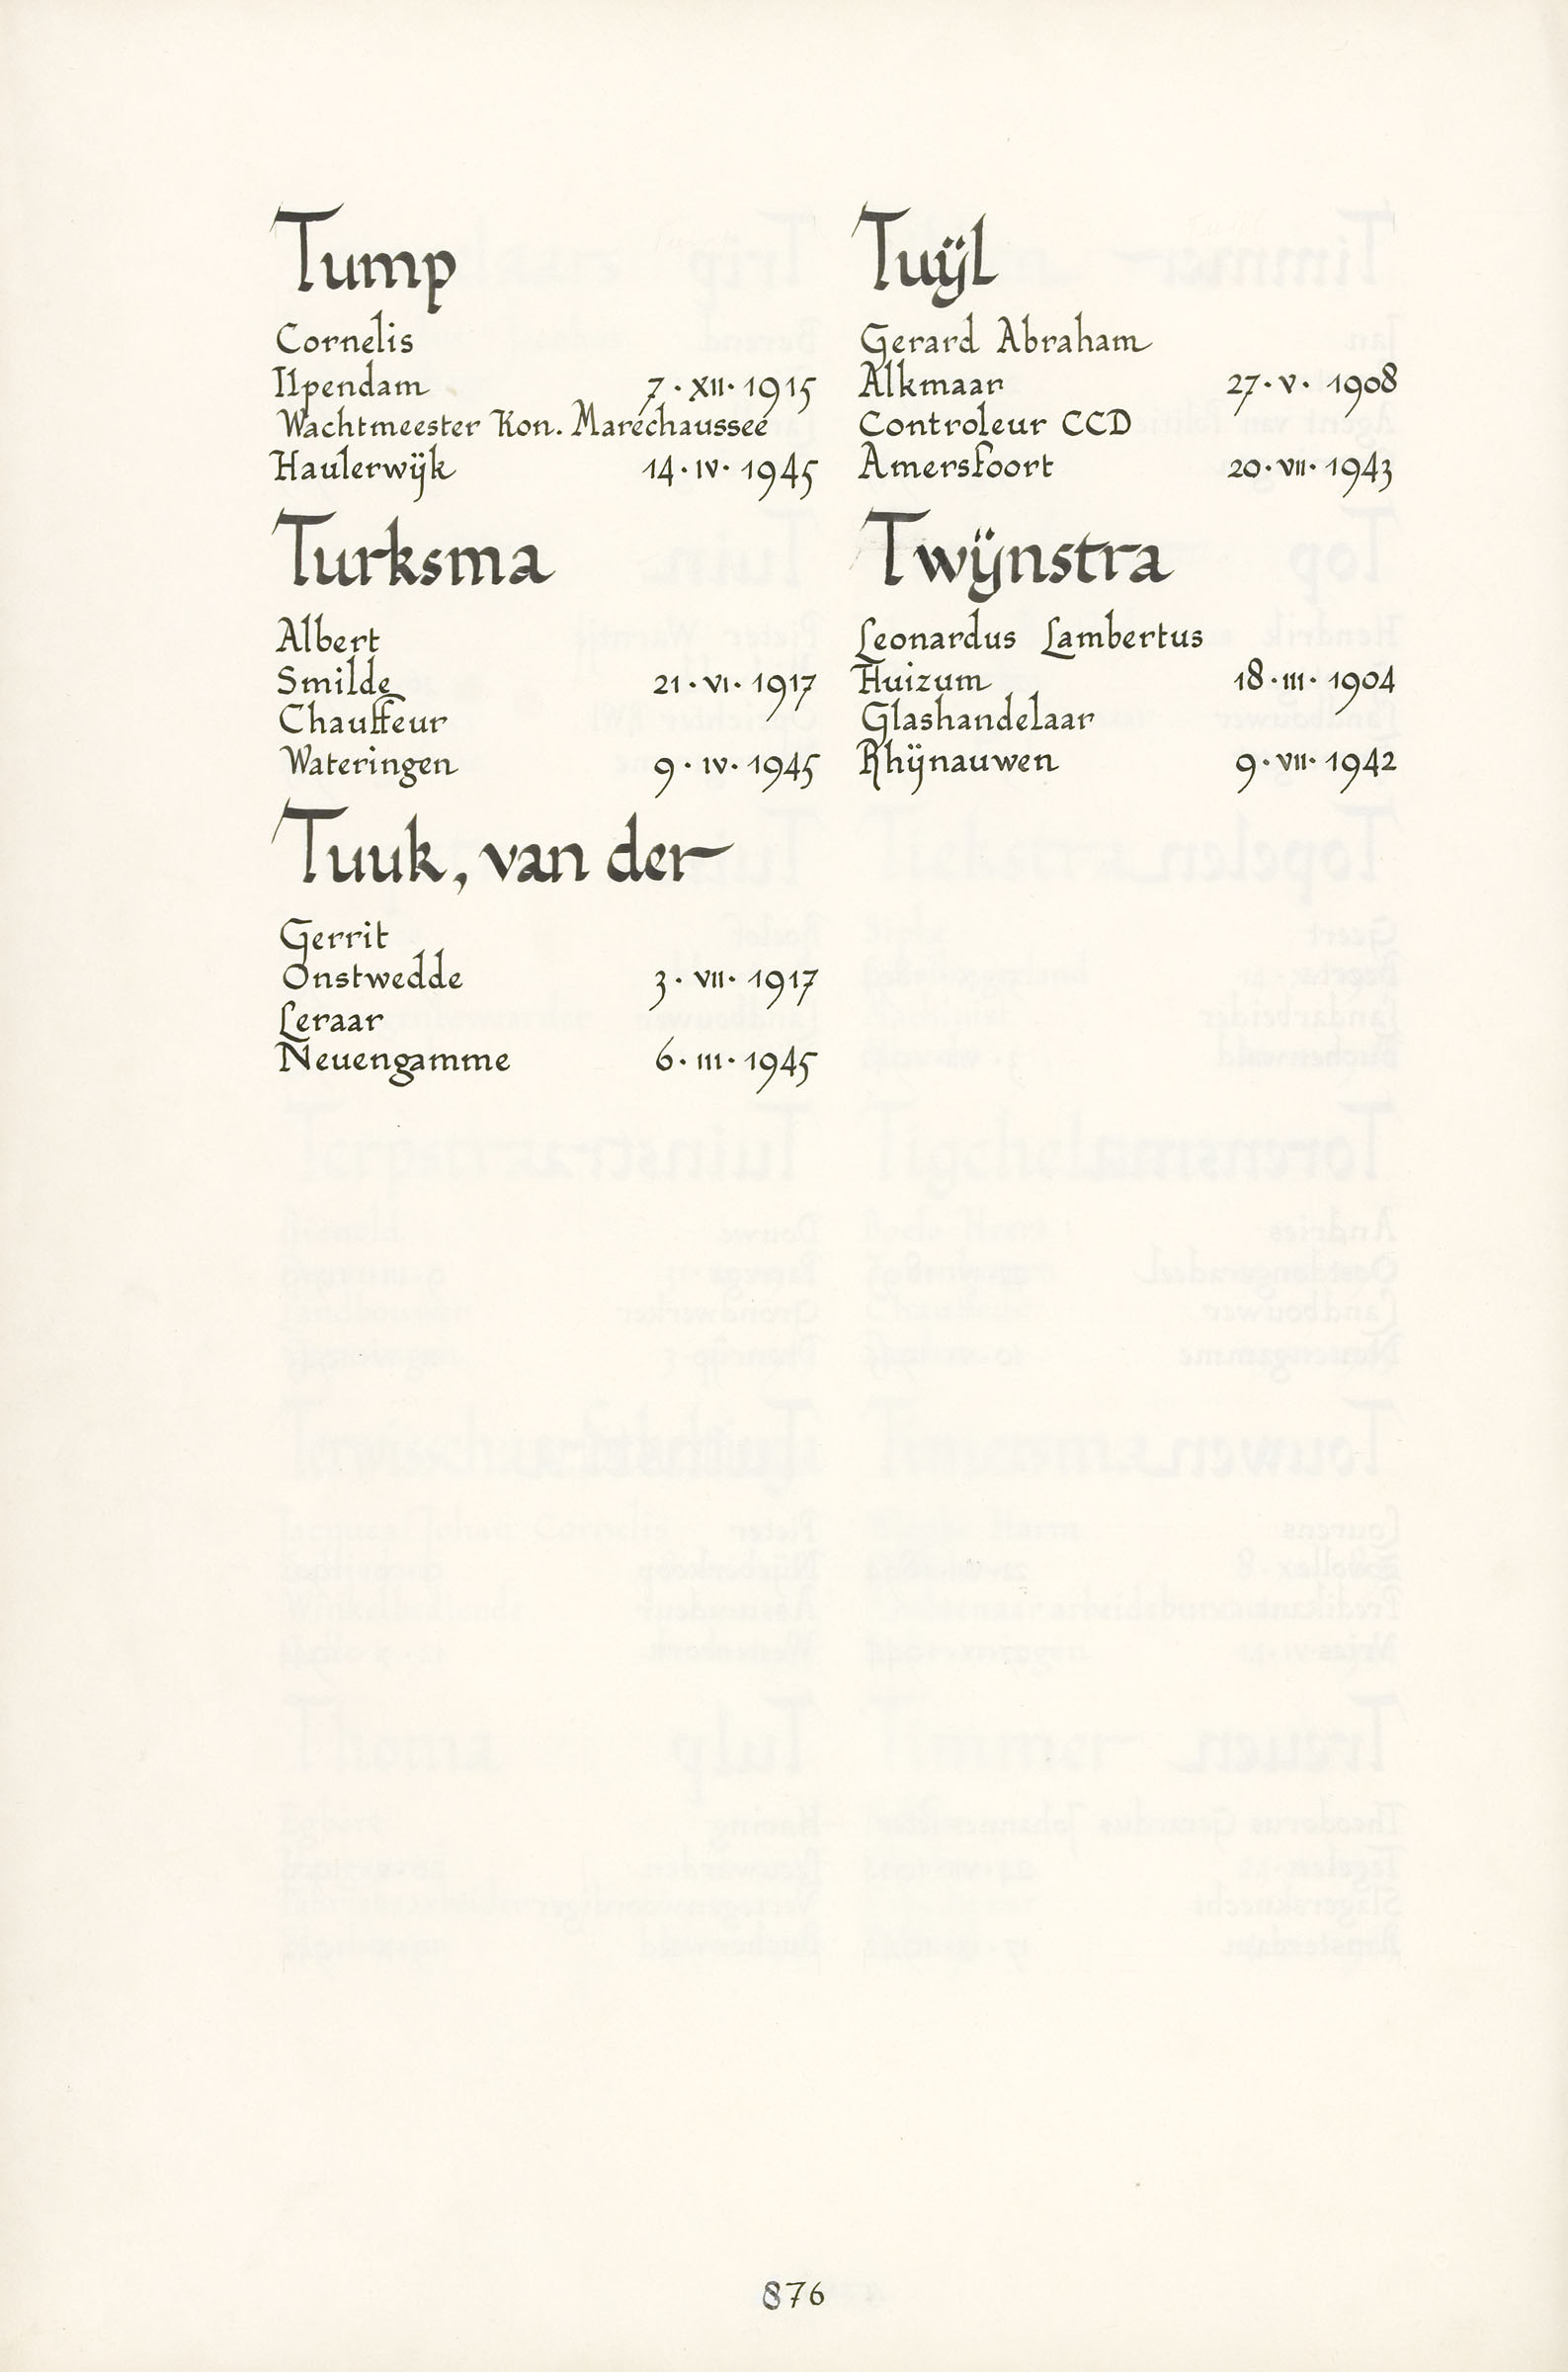 Tump
Cornelis
Ilpendam 7·XII·1915
Wachtmeester Kon. Maréchaussee
Haulerwijk 14·IV·1945
Turksma
Albert
Smilde 21·VI·1917
Chauffeur
Wateringen 9·IV·1945
Tuuk, van der
Gerrit
Onstwedde 3·VII·1917
Leraar
Neuengamme 6·III·1945
Tuÿl
Gerard Abraham
Alkmaar 27·V·1908
Controleur CCD
Amersfoort 20·VII·1943
Twijnstra
Leonardus Lambertus
Huizum 18·III·1904
Glashandelaar
Rhijnauwen 9·VII·1942
876